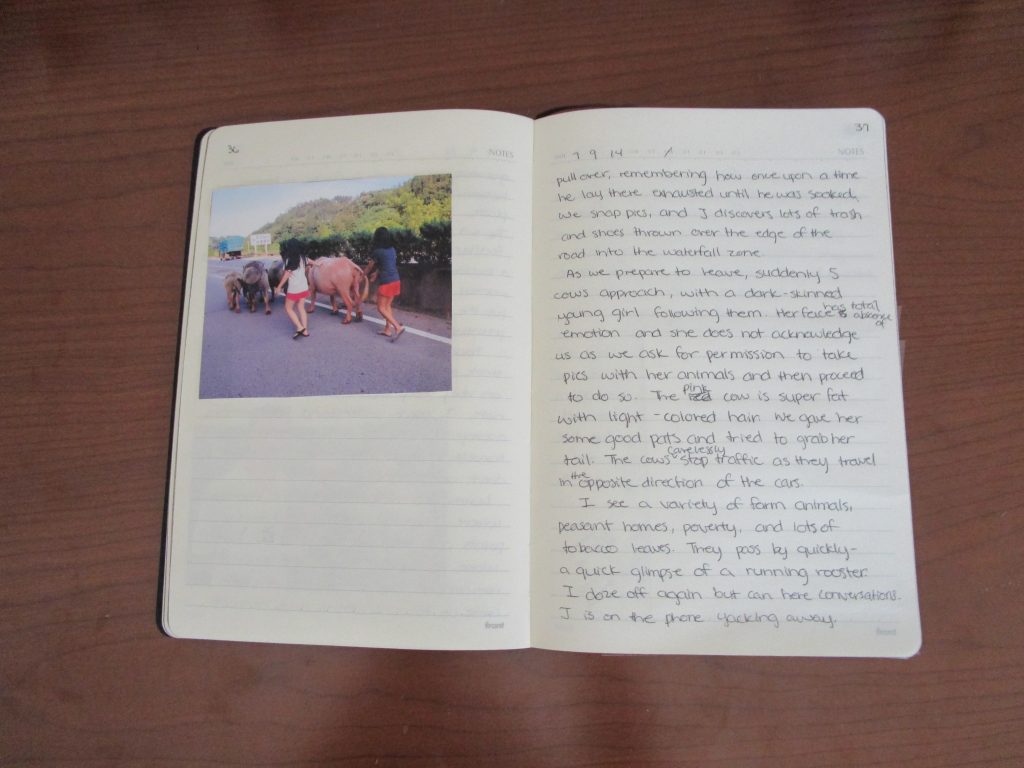 36
NOTES
front
37
NOTES
9 9 14
pull over, remembering how once upon a time
he lay there exhausted until he was soaked,
we snap pics, and J discovers lots of trash
and shoes thrown over the edge of the
road into the waterfall zone.
As we prepare to leave, suddenly 5
cows approach, with a dark-skinned
young girl following them. Her face has total absence of
emotion and she does not acknowledge
us as we ask for permission to take
pics with her animals and then proceed
to do so. The pink cow is super fat
with light-colored hair. We gave her
some good pats and tried to grab her
tail. The cows carelessly stop traffic as they travel
in the opposite direction of the cars.
I see a variety of farm animals,
peasant homes, poverty, and lots of
tobacco leaves. They pass by quickly-
a quick glimpse of a running rooster.
I doze off again but can here conversations.
J is on the phone yacking away.
front